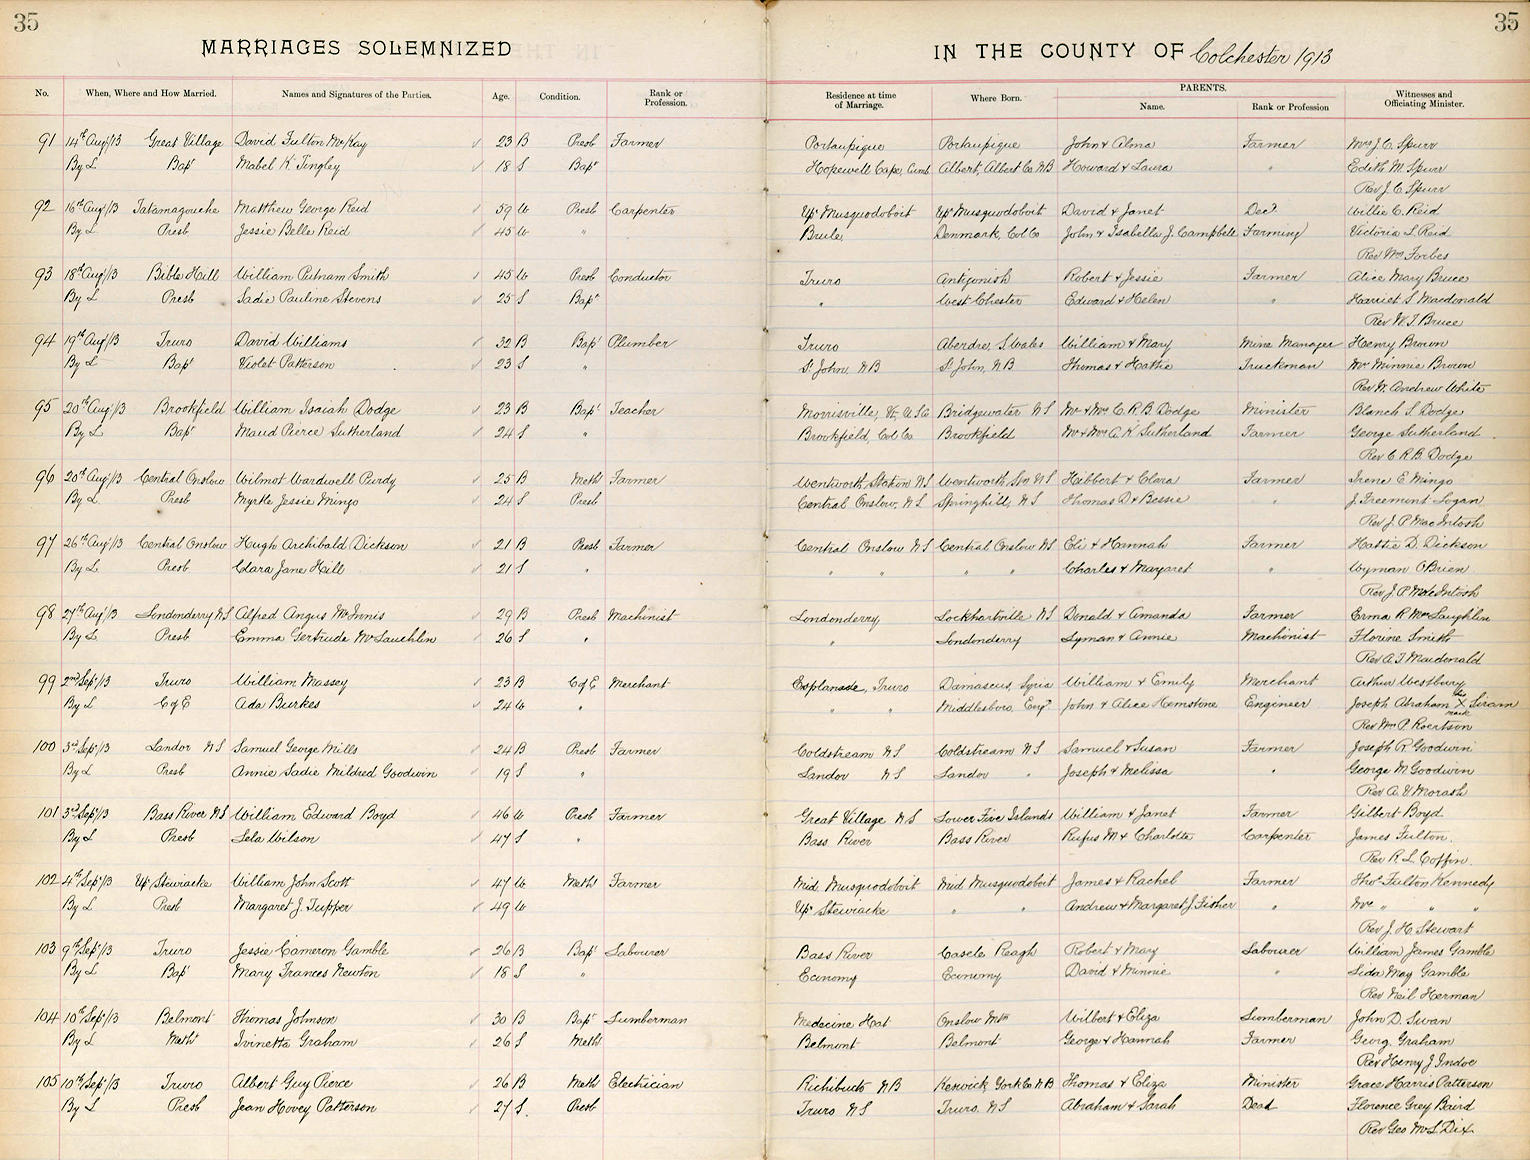 35
35
MARRIAGES SOLEMNIZED
IN THE COUNTY OF Colchester 1913
No. When, Where and How Married. Names and Signatures of the Parties. Age. Condition. Rank or Profession. Residence at time of Marriage. Where Born. PARENTS. Name. Rank or Profession Witnesses and Officiating Minister.
91 14th Aug/13 Great Village David Fulton McKay 23 B Presb Farmer Portaupique Portaupique John & Alma Farmer Mrs J. C. Spurr
By L Bapt Mabel K. Tingley 18 S Bapt Hopewell Cape, Albert, Albert Co. NB Howard & Laura " Edith M Spurr
Rev J. C. Spurr
92 16th Aug/13 Tatamagouche Matthew George Reid 59 W Presb Carpenter Upr Musquodoboit Upr Musquodoboit David & Janet Decd Willie C. Reid
By L Presb Jessie Belle Reid 45 W " Brule, Denmark, Col Co John & Isabella J. Campbell Farming Victoria L Reid
Rev Wm Forbes
93 18th Aug/13 Bible Hill William Putnam Smith 45 W Presb Conductor Truro Antigonish Robert & Jessie Farmer Alice Mary Bruce
By L Presb Sadie Pauline Stevens 25 S Bapt " West Chester Edward & Helen " Harriet S Macdonald
Rev W. T. Bruce
94 19th Aug/13 Truro David Williams 32 B Bapt Plumber Truro Aberdre, S. Wales William & Mary Mine Manager Henry Brown
By L Bapt Violet Patterson 23 S " St John, NB St John, NB Thomas & Hattie Truckman Mrs Minnie Brown
Rev W. Andrew White
95 20th Aug/13 Brookfield William Isaiah Dodge 23 B Bapt Teacher Morrisville, Vt, USA Bridgewater NS Mr & Mrs C. R. B. Dodge Minister Blanch S. Dodge
By L Bapt Maud Pierce Sutherland 24 S " Brookfield, Col Co. Brookfield Mr & Mrs A. K Sutherland Farmer George Sutherland
Rev C R. B. Dodge
96 20th Aug/13 Central Onslow Wilmot Wardwell Purdy 25 B Meth Farmer Wentworth Station NS Wentworth Stn NS Hibbert & Clara Farmer Irene E Mingo
By L Presb Myrtle Jessie Mingo 24 S Presb Central Onslow, NS Springhill, NS Thomas D & Bessie " J. Freemont Logan
Rev J. P. MacIntosh
97 26th Aug/13 Central Onslow Hugh Archibald Dickson 21 B Presb Farmer Central Onslow NS Central Onslow NS Eli & Hannah Farmer Hattie D. Dickson
By L Presb Clara Jane Hill 21 S " " " " " Charles & Margaret " Wyman O'Brien
Rev J. P. MacIntosh
98 27th Aug/13 Londonderry NS Alfred Angus McInnis 29 B Presb Machinist Londonderry Lockhartville NS Donald & Amanda Farmer Erma R McLaughlin
By L Presb Emma Gertrude McLauchlin 26 S " " Londonderry Lyman & Annie Machinist Florine Smith
Rev A. T. Macdonald
99 2nd Sept/13 Truro William Massey 23 B C of E Merchant Esplanade, Truro Damascus, Syria William & Emily Merchant Arthur Westbury
By L C of E Ada Burkes 24 W " " " Middlesboro, Engd John & Alice Hemstone Engineer Joseph Abraham his X mark Siram
Rev Wm P. Roertson
100 3rd Sept/13 Landor NS Samuel George Mills 24 B Presb Farmer Coldstream NS Coldstream NS Samuel & Susan Farmer Joseph R Goodwin
By L Presb Annie Sadie Mildred Goodwin 19 S " Landor NS Landor " Joseph & Melissa " George M Goodwin
Rev A. V Morash
101 3rd Sept/13 Bass River NS William Edward Boyd 46 W Presb Farmer Great Village NS Lower Five Islands William & Janet Farmer Gilbert Boyd
By L Presb Lela Wilson 47 S " Bass River Bass River Rufus M & Charlotte Carpenter James Fulton.
Rev R. L. Coffin.
102 4th Sept/13 Upr Stewiacke William John Scott 47 W Meth Farmer Mid. Musquodoboit Mid. Musquodoboit James & Rachel Farmer Thos. Fulton Kennedy
By L Presb Margaret J. Tupper 49 W Upr Stewiacke " " Andrew & Margaret J. Fisher " Mrs " " "
Rev J. H. Stewart
103 9th Sept/13 Truro Jessie Cameron Gamble 26 B Bapt Labourer Bass River Castle Reagh Robert & Mary Labourer William James Gamble
By L Bapt Mary Frances Newton 18 S " Economy Economy David & Minnie " Lida May Gamble
Rev Neil Herman
104 10th Sept/13 Belmont Thomas Johnson 30 B Bapt Lumberman Medecine Hat Onslow Mtn Wilbert & Eliza Lumberman John D. Swan
By L Meth Irvinetta Graham 26 S Meth Belmont Belmont George & Hannah Farmer Georg. Graham
Rev Henry J Indoe
105 10th Sept/13 Truro Albert Guy Pierce 26 B Meth Electrician Richibucto NB Keswick York Co NB Thomas & Eliza Minister Grace Harris Patterson
By L Presb Jean Hovey Patterson 27 S. Presb Truro NS Truro. NS Abraham & Sarah Dead Florence Grey Baird
Rev Geo McL. Dix